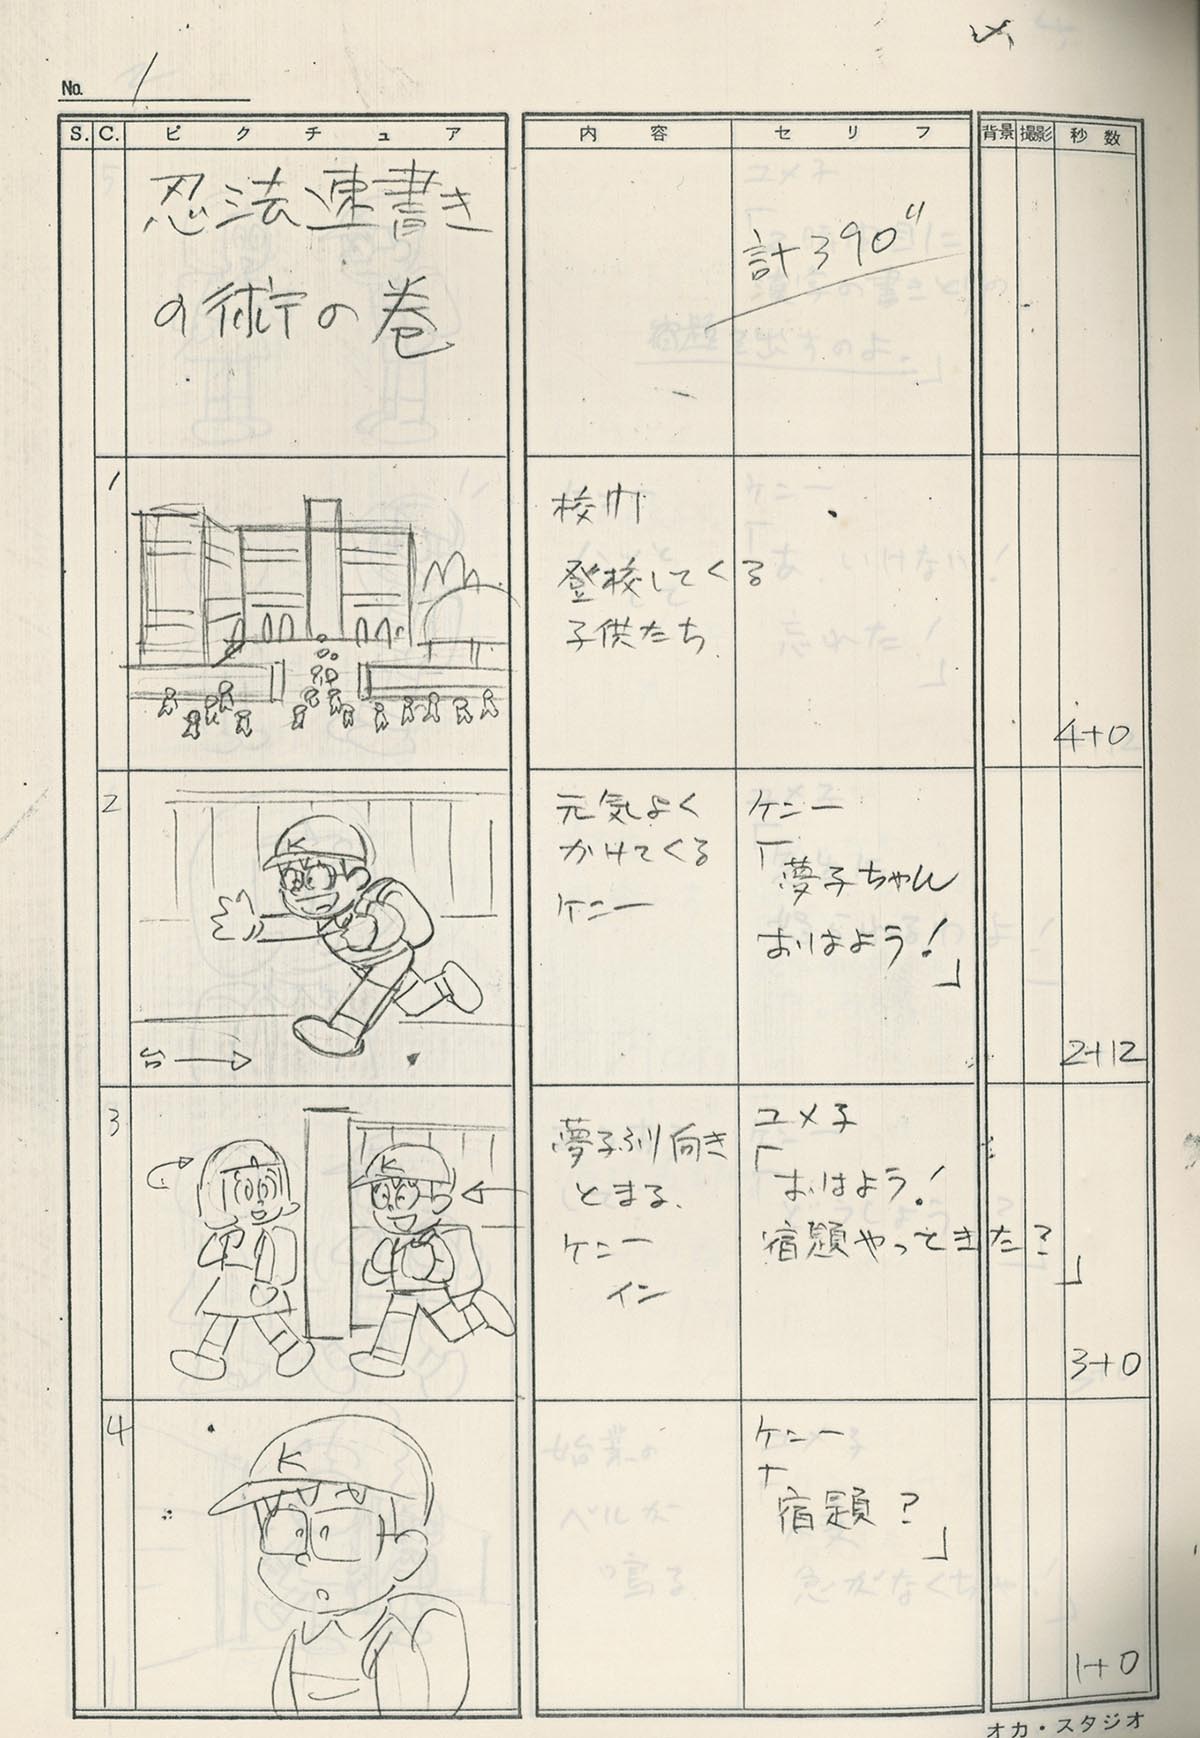 No. 1
S. C. ピクチュア 内容 セリフ 背景 撮影 秒数
忍法速書き
の術の巻
計390"
1
校門
登校してくる
子供たち
4+0
K
台→
2
元気よく
かけてくる
ケニー
ケニー
「夢子ちゃん
おはよう!」
2+12
3
K
夢子ふり向き
とまる、
ケニー
イン
ユメ子
「おはよう!
宿題やってきた?」
3+0
4
K
ケニー
「宿題?」
1+0
オカ・スタジオ